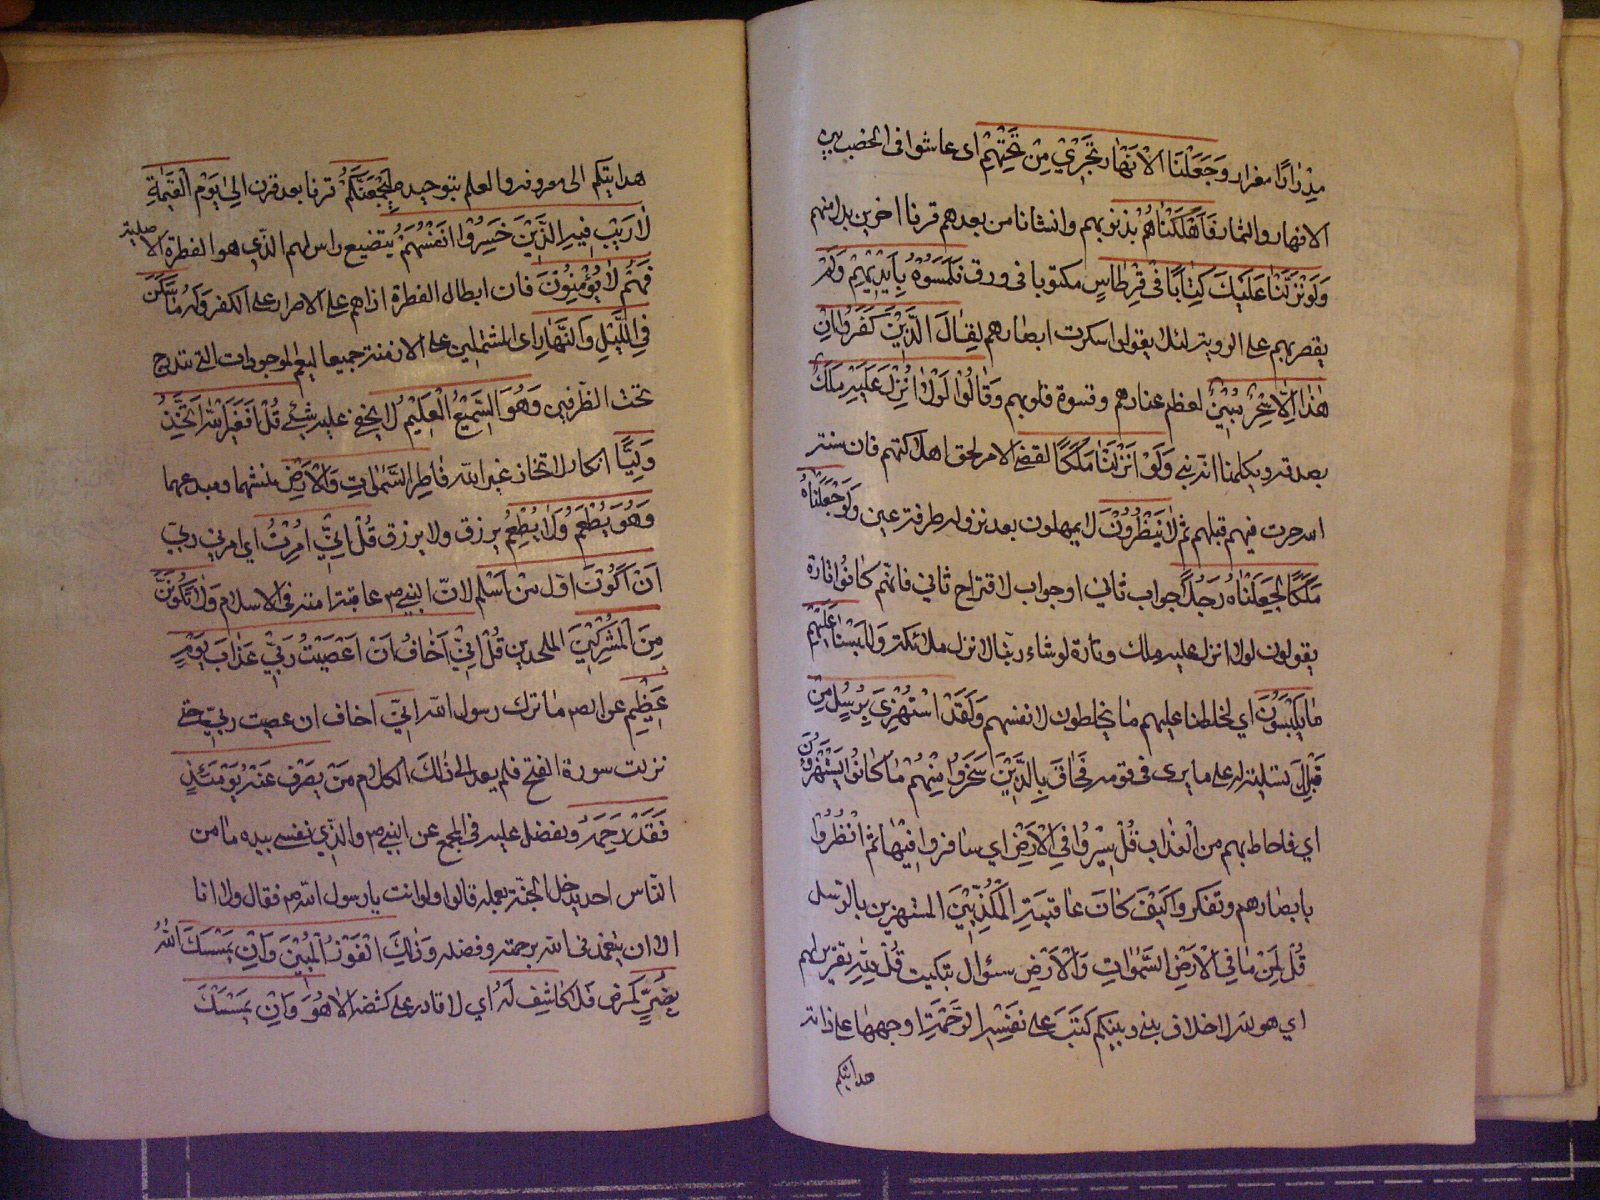 مِدْرَارًا مغزار وَجَعَلْنَا الْاَنْهَارَ تَجْرِيْ مِنْ تَحْتِهِمْ اى عاشوا فى الخصب بين
الانهار والثمار فَاَهْلَكْنَاهُمْ بِذنوبهم وانشانا من بعدهم قرنا اخرين بدل منهم
وَلَوْ نَزَّلْنَا عَلَيْكَ كِتَابًا فِيْ قِرْطَاسٍ مكتوبا فى ورق فَلَمَسَوْهُ بِاَيْدِيْهِمْ وَلَمْ
يقصر بهم على الروية لئلا يقولوا سكرت ابصارهم لَقَالَ الَّذِيْنَ كَفَرُوْا اِنْ
هٰذَا اِلَّا سِحْرٌ مُبِيْنٌ لعظم عنادهم وقسوة قلوبهم وَقَالُوْا لَوْلَا اُنْزِلَ عَلَيْهِ مَلَكٌ
بصدقه ويكلمنا انه نبى وَلَوْ اَنْزَلْنَا مَلَكًا لقضى الامر لحق اهلاكهم فان سنة
الله جرت فيهم قبلهم ثُمَّ لَا يُنْظَرُوْنَ لا يمهلون بعد نزوله طرفة عين وَلَوْ جَعَلْنَاهُ
مَلَكًا لَجَعَلْنَاهُ رَجُلًا جواب ثانى او جواب لاقتراح ثانى فانهم كانوا تارة
يقولون لولا انزل عليه ملك وتارة لو شاء ربنا لانزل ملائكة وَلَلَبَسْنَا عَلَيْهِمْ
مَا يَلْبِسُوْنَ اي لخلطنا عليهم ما يخلطون لانفسهم وَلَقَدْ اسْتُهْزِئَ بِرُسُلٍ مِنْ
قَبْلِكَ تسلية له على ما يرى فى قومه فَحَاقَ بِالَّذِيْنَ سَخِرُوْا مِنْهُمْ مَا كَانُوْا يَسْتَهْزِؤُنَ
اي فاحاط بهم من العذاب قُلْ سِيْرُوْا فِي الْاَرْضِ اي سافروا فِيْهَا ثُمَّ انْظُرُوْا
بابصارهم وتفكروا كَيْفَ كَانَ عَاقِبَةُ الْمُكَذِّبِيْنَ المستهزين بالرسل
قُلْ لِمَنْ مَا فِي الْاَرْضِ السَّمٰوَاتِ وَالْاَرْضِ سئوال تبكيت قُلْ لِلّٰهِ تقرير لهم
اي هو لله لا خلاف بينى وبينكم كَتَبَ عَلٰى نَفْسِهِ الرَّحْمَةَ اوجبها على ذاته
هدايتكم
هدايتكم الى معرفته والعلم بتوحيده لَيَجْمَعَنَّكُمْ قرنا بعد قرن اِلٰى يَوْمِ الْقِيٰمَةِ
لَا رَيْبَ فِيْهِ الَّذِيْنَ خَسِرُوْا اَنْفُسَهُمْ بتضيع راس لهم الذي هو الفطرة الاصلية
فَهُمْ لَا يُؤْمِنُوْنَ فان ابطال الفطرة اداهم على الاصرار على الكفر وَلَهُ مَا سَكَنَ
فِي اللَّيْلِ وَالنَّهَارِ اى المشتملين على الازمنة جميعا ليعم الموجودات التى تندرج
تحت الظرفين وَهُوَ السَّمِيْعُ الْعَلِيْمُ لا يخفى عليه شئ قُلْ اَفَغَيْرَ اللّٰهِ اَتَّخِذُ
وَلِيًّا انكار لاتخاذ غير الله فَاطِرِ السَّمٰوَاتِ وَالْاَرْضِ منشهما ومبدعهما
وَهُوَ يُطْعِمُ وَلَا يُطْعَمُ يرزق ولا يرزق قُلْ اِنِّيْ اُمِرْتُ اي امرنى ربي
اَنْ اَكُوْنَ اَوَّلَ مَنْ اَسْلَمَ لانّ النبى ص سابق امته فى الاسلام وَلَا تَكُوْنَنَّ
مِنَ الْمُشْرِكِيْنَ الملحدين قُلْ اِنِّيْ اَخَافُ اَنْ اَعْصَيْتُ رَبِّيْ عَذَابَ يَوْمٍ
عَظِيْمٍ عن الص ما ترك رسول الله انّي اخاف ان عصيت ربّي حتى
نزلت سورة الفتح فلم يعد الى ذلك الكلام مَنْ يُصْرَفْ عَنْهُ يَوْمَئِذٍ
فَقَدْ رَحِمَهُ وتفضل عليه فى المجمع عن النبى ص والذي نفسى بيده ما من
الناس احد يدخل الجنّة بعمله قالوا ولا انت يا رسول الله ص فقال ولا انا
الا ان يتغمدنى الله برحمته وفضله وَذٰلِكَ الْفَوْزُ الْمُبِيْنُ وَاِنْ يَمْسَسْكَ اللّٰهُ
بِضُرٍّ كمرض فَلَا كَاشِفَ لَهُ اي لا قادر على كشفه اِلَّا هُوَ وَاِنْ يَمْسَسْكَ